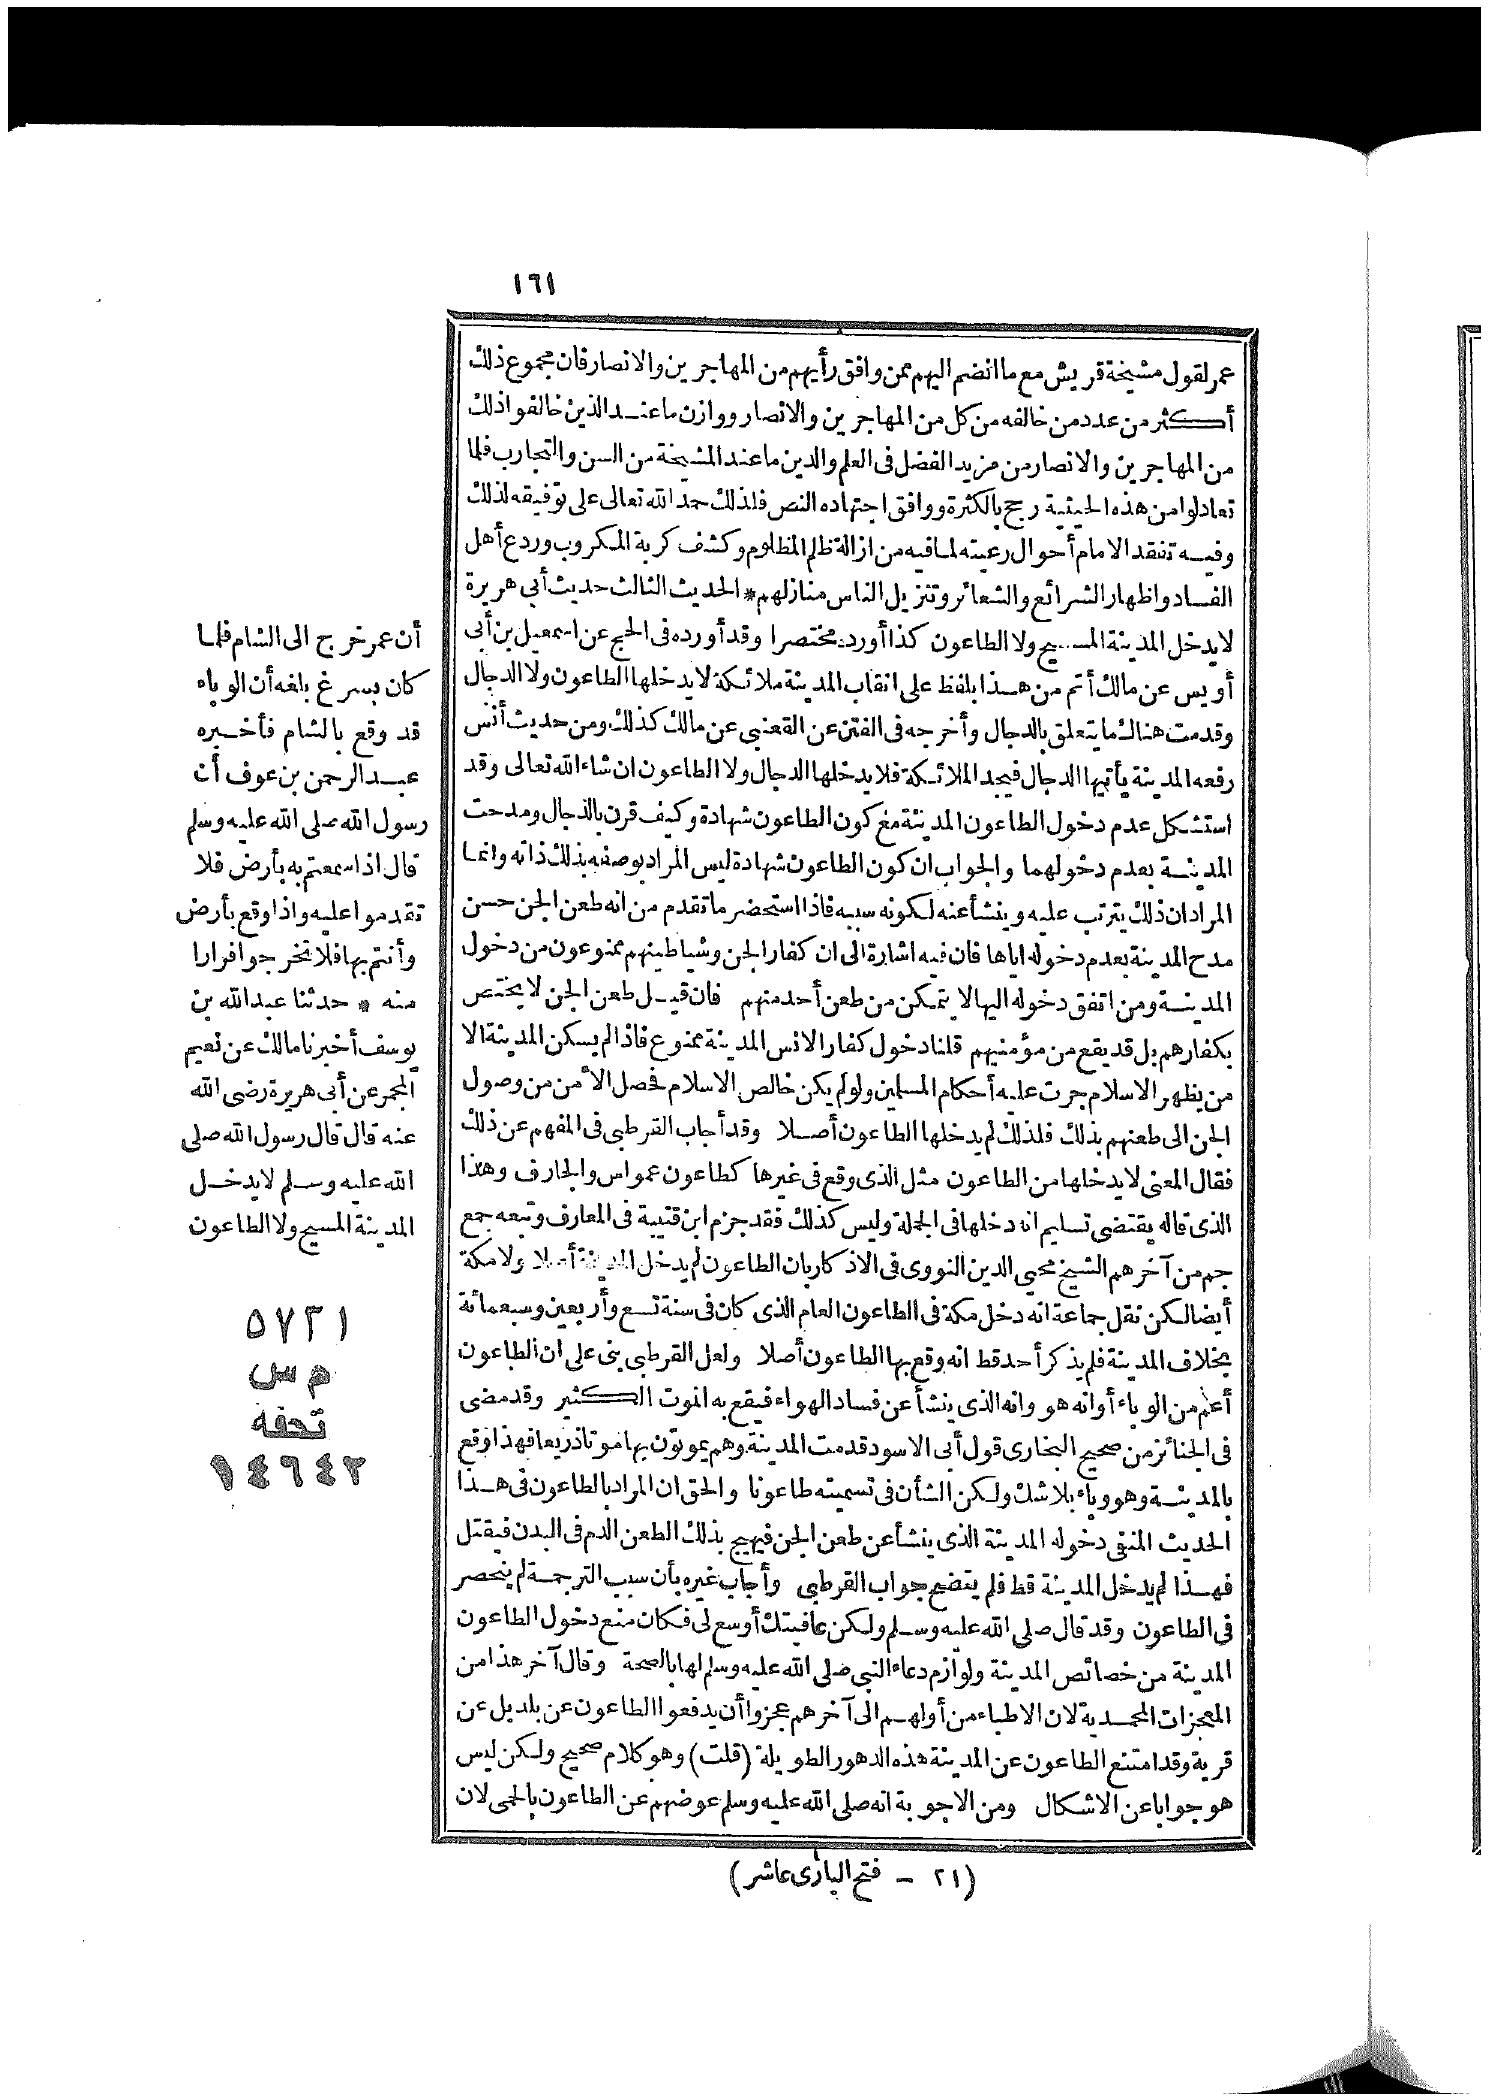 ١٦١
عمر لقول مشيخة قريش مع ما انضم اليهم ممن وافق رأيهم من المهاجرين والانصار فان مجموع ذلك
أكثر من عدد من خالفه من كل من المهاجرين والانصار ووازن ما عند الذين خالفوا ذلك
من المهاجرين والانصار من مزيد الفضل فى العلم والدين ما عند المشيخة من السن والتجارب فلما
تعادلوا من هذه الحيثية رجح بالكثرة ووافق اجتهاده النص فلذلك حمد الله تعالى على توفيقه لذلك
وفيه تفقد الامام أحوال رعيته لما فيه من ازالة ظلم المظلوم وكشف كربة المكروب وردع أهل
الفساد واظهار الشرائع والشعائر وتنزيل الناس منازلهم * الحديث الثالث حديث أبى هريرة
لا يدخل المدينة المسيح ولا الطاعون كذا أورده مختصرا وقد أورده فى الحج عن اسمعيل بن أبى
أويس عن مالك أتم من هذا بلفظ على انقاب المدينة ملائكة لا يدخلها الطاعون ولا الدجال
وقدمت هناك ما يتعلق بالدجال وأخرجه فى الفتن عن القعنبى عن مالك كذلك ومن حديث أنس
رفعه المدينة يأتيها الدجال فيجد الملائكة فلا يدخلها الدجال ولا الطاعون ان شاء الله تعالى وقد
استشكل عدم دخول الطاعون المدينة مع كون الطاعون شهادة وكيف قرن بالدجال ومدحت
المدينة بعدم دخولهما والجواب ان كون الطاعون شهادة ليس المراد بوصفه بذلك ذاته وانما
المراد ان ذلك يترتب عليه وينشأ عنه لكونه سببه فاذا استحضر ما تقدم من انه طعن الجن حسن
مدح المدينة بعدم دخوله اياها فان فيه اشارة الى ان كفار الجن وشياطينهم ممنوعون من دخول
المدينة ومن اتفق دخوله اليها لا يتمكن من طعن أحد منهم فان قيل طعن الجن لا يختص
بكفارهم بل قد يقع من مؤمنيهم قلنا دخول كفار الانس المدينة ممنوع فاذا لم يسكن المدينة الا
من يظهر الاسلام جرت عليه أحكام المسلمين ولو لم يكن خالص الاسلام فحصل الأمن من وصول
الجن الى طعنهم بذلك فلذلك لم يدخلها الطاعون أصلا وقد أجاب القرطبى فى المفهم عن ذلك
فقال المعنى لا يدخلها من الطاعون مثل الذى وقع فى غيرها كطاعون عمواس والجارف وهذا
الذى قاله يقتضى تسليم انه دخلها فى الجملة وليس كذلك فقد جزم ابن قتيبة فى المعارف وتبعه جمع
جم من آخرهم الشيخ محيى الدين النووى فى الاذكار بان الطاعون لم يدخل المدينة أصلا ولا مكة
أيضا لكن نقل جماعة انه دخل مكة فى الطاعون العام الذى كان فى سنة تسع وأربعين وسبعمائة
بخلاف المدينة فلم يذكر أحد قط انه وقع بها الطاعون أصلا ولعل القرطبى بنى على ان الطاعون
أعم من الوباء أو انه هو وانه الذى ينشأ عن فساد الهواء فيقع به الموت الكثير وقد مضى
فى الجنائز من صحيح البخارى قول أبى الاسود قدمت المدينة وهم يموتون بها موتا ذريعا فهذا وقع
بالمدينة وهو وباء بلا شك ولكن الشأن فى تسميته طاعونا والحق ان المراد بالطاعون فى هذا
الحديث المنفى دخوله المدينة الذى ينشأ عن طعن الجن فيهيج بذلك الطعن الدم فى البدن فيقتل
فهذا لم يدخل المدينة قط فلم يتضح جواب القرطبى وأجاب غيره بأن سبب الترجمة لم ينحصر
فى الطاعون وقد قال صلى الله عليه وسلم ولكن عافيتك أوسع لى فكان منع دخول الطاعون
المدينة من خصائص المدينة ولوازم دعاء النبى صلى الله عليه وسلم لها بالصحة وقال آخر هذا من
المعجزات المحمدية لان الاطباء من أولهم الى آخرهم عجزوا أن يدفعوا الطاعون عن بلد بل عن
قرية وقد امتنع الطاعون عن المدينة هذه الدهور الطويلة (قلت) وهو كلام صحيح ولكن ليس
هو جوابا عن الاشكال ومن الاجوبة انه صلى الله عليه وسلم عوضهم عن الطاعون بالحمى لان
أن عمر خرج الى الشام فلما
كان بسرغ بلغه أن الوباء
قد وقع بالشام فأخبره
عبد الرحمن بن عوف أن
رسول الله صلى الله عليه وسلم
قال اذا سمعتم به بأرض فلا
تقدموا عليه واذا وقع بأرض
وأنتم بها فلا تخرجوا فرارا
منه * حدثنا عبد الله بن
يوسف أخبرنا مالك عن نعيم
المجمر عن أبى هريرة رضى الله
عنه قال قال رسول الله صلى
الله عليه وسلم لا يدخل
المدينة المسيح ولا الطاعون
٥٧٣١
م س
تحفة
١٤٦٤٢
(٢١ - فتح البارى عاشر)